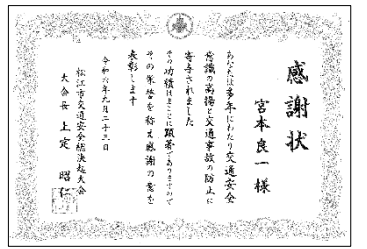 感謝状
宮本良一 様
あなたは多年にわたり交通安全
意識の高揚と交通事故の防止に
寄与されました
その功績はまことに顕著でありますので
その栄誉を称え感謝の意を
表彰します
令和六年九月二十三日
松江市交通安全総決起大会
大会長 上定 昭仁